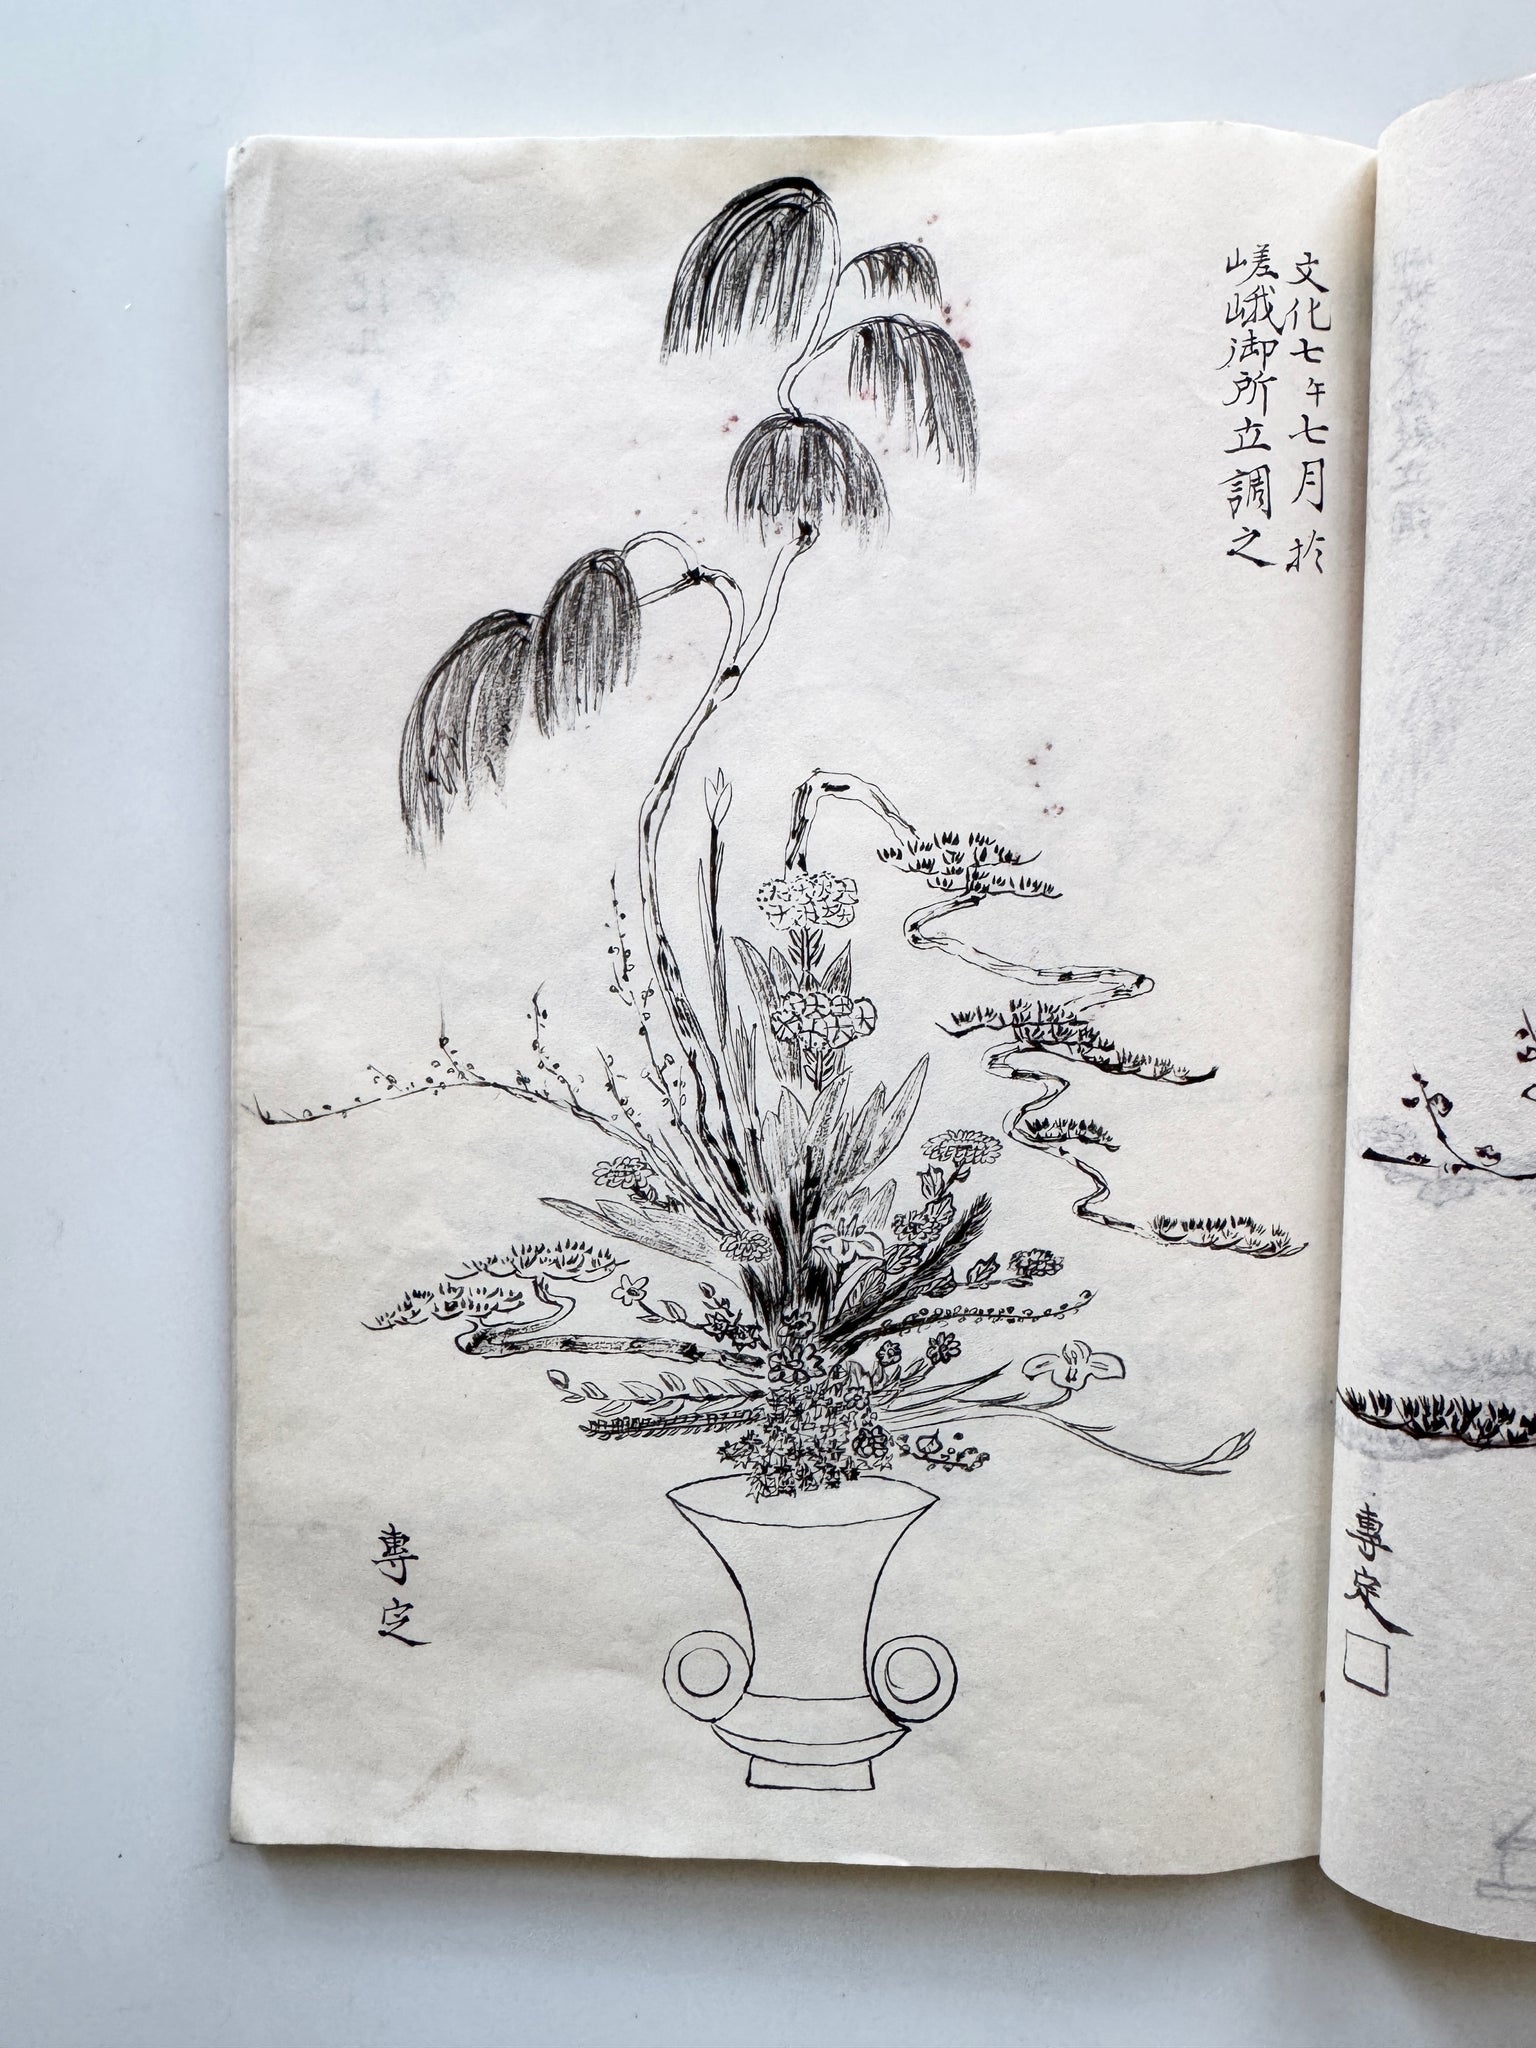 文化七午七月於
嵯峨御所立調之
專定
專定